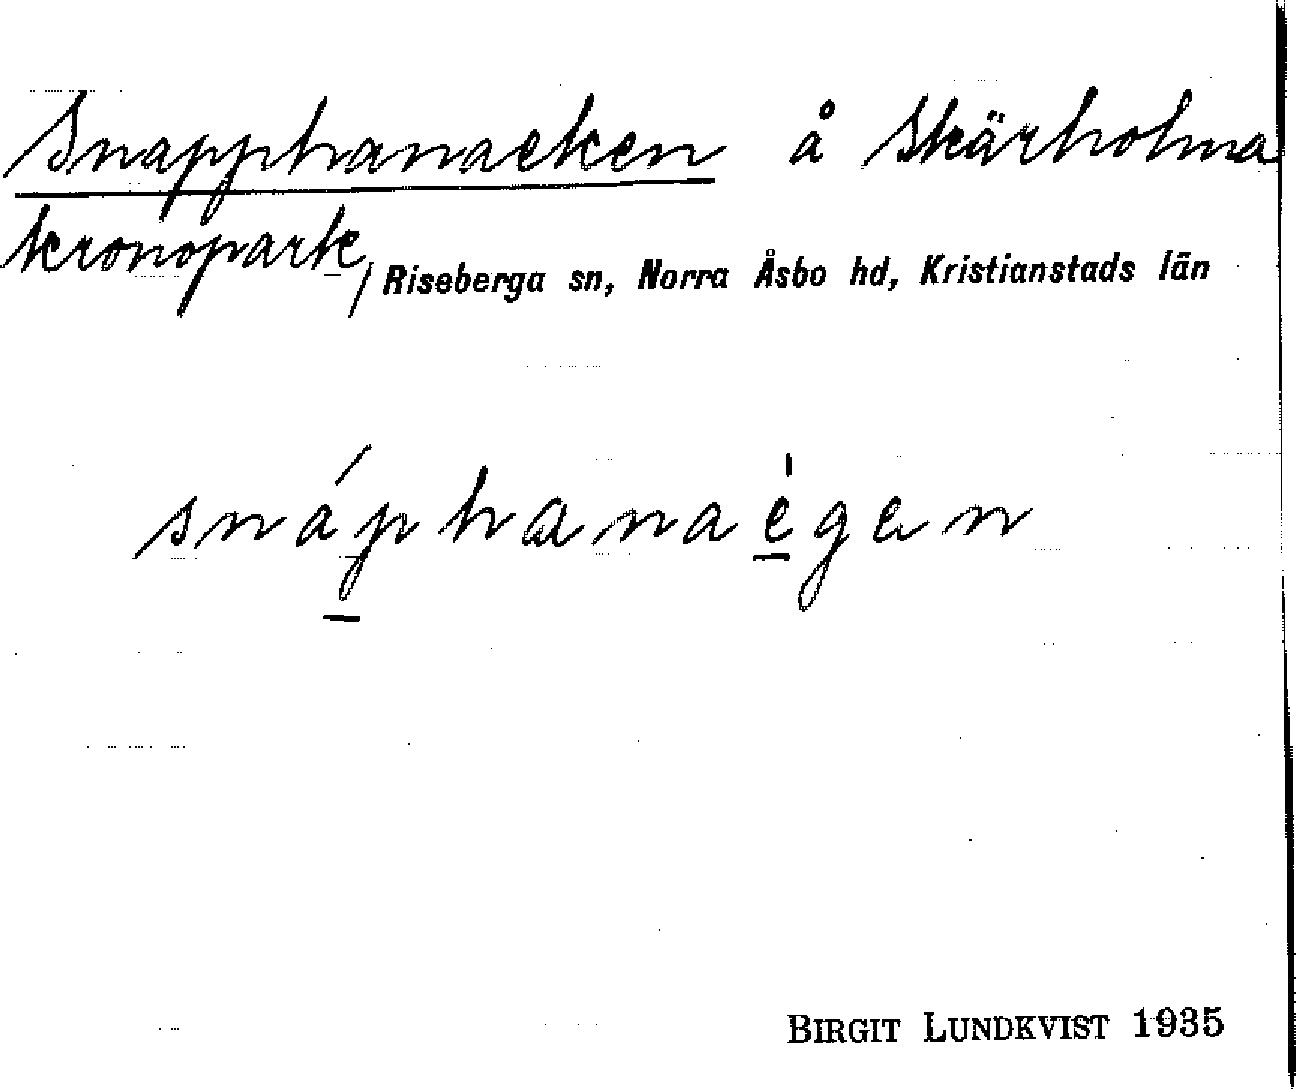 Snapphanaeken å Skärholma
kronopark, Riseberga sn, Norra Åsbo hd, Kristianstads län
snáphanaégen
BIRGIT LUNDKVIST 1935